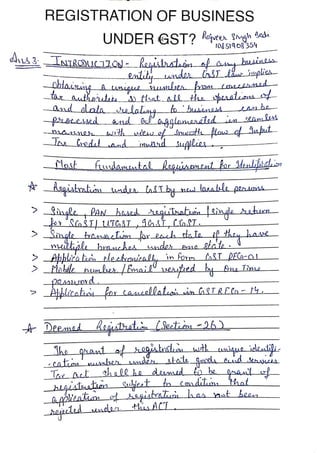 REGISTRATION OF BUSINESS
UNDER GST?
Ans 3:
INTRODUCTION - Registration of any business
entity under GST law implies
obtaining a unique number from concerned
tax authorities so that all the operations of
and data relating to business can be
processed and agglomerated in seamless
manner with view of smooth flow of Input
Tax Credit and inward supplies.
Most Fundamental Requirement for Identification
Registration under GST by new taxable persons
> Single, PAN based registration / single return
for SGST/ UTGST, IGST, CGST.
> Single transaction for each state if they have
multiple branches under one state.
> Application electronically in Form GST REG-01
> Mobile number / Email verified by One Time
password.
> Application for cancellation in GST REG - 14.
Deemed Registration (Section - 26)
The grant of registration with unique identifi-
-cation number under state goods and services
Tax Act shall be deemed to be grant of
registration subject to condition that
application of registration has not been
rejected under this ACT.